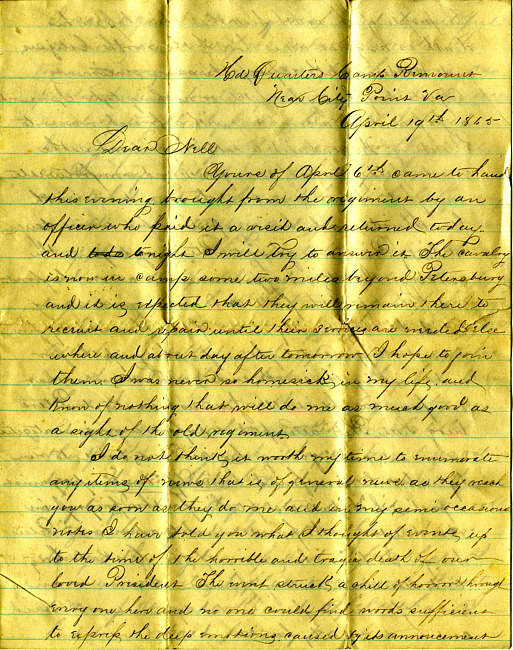 Hd Quarters Camp Remount
Near City Point Va
April 19th 1865
Dear Nell
Yours of April 6th came to hand
this evening brought from the regiment by an
officer who paid it a visit and returned today.
and to do tonight I will try to answer it The Cavalry
is now in camp some two miles beyond Petersburg
and it is expected that they will remain there to
recruit and repair until their services are needed else
where and about day after tomorrow I hope to join
them. I was never so homesick in my life, and
know of nothing that will do me as much good as
a sight of the old regiment
I do not think it worth my time to enumerate
any items of news that is, of general news as they reach
you as soon as they do me and in my some occasional
notes I have told you what I thought of events, up
to the time of the horrible and tragic death of our
loved President The event struck a chill of horror through
every one here and no one could find words sufficient
to express the deep emotions caused by its announcement